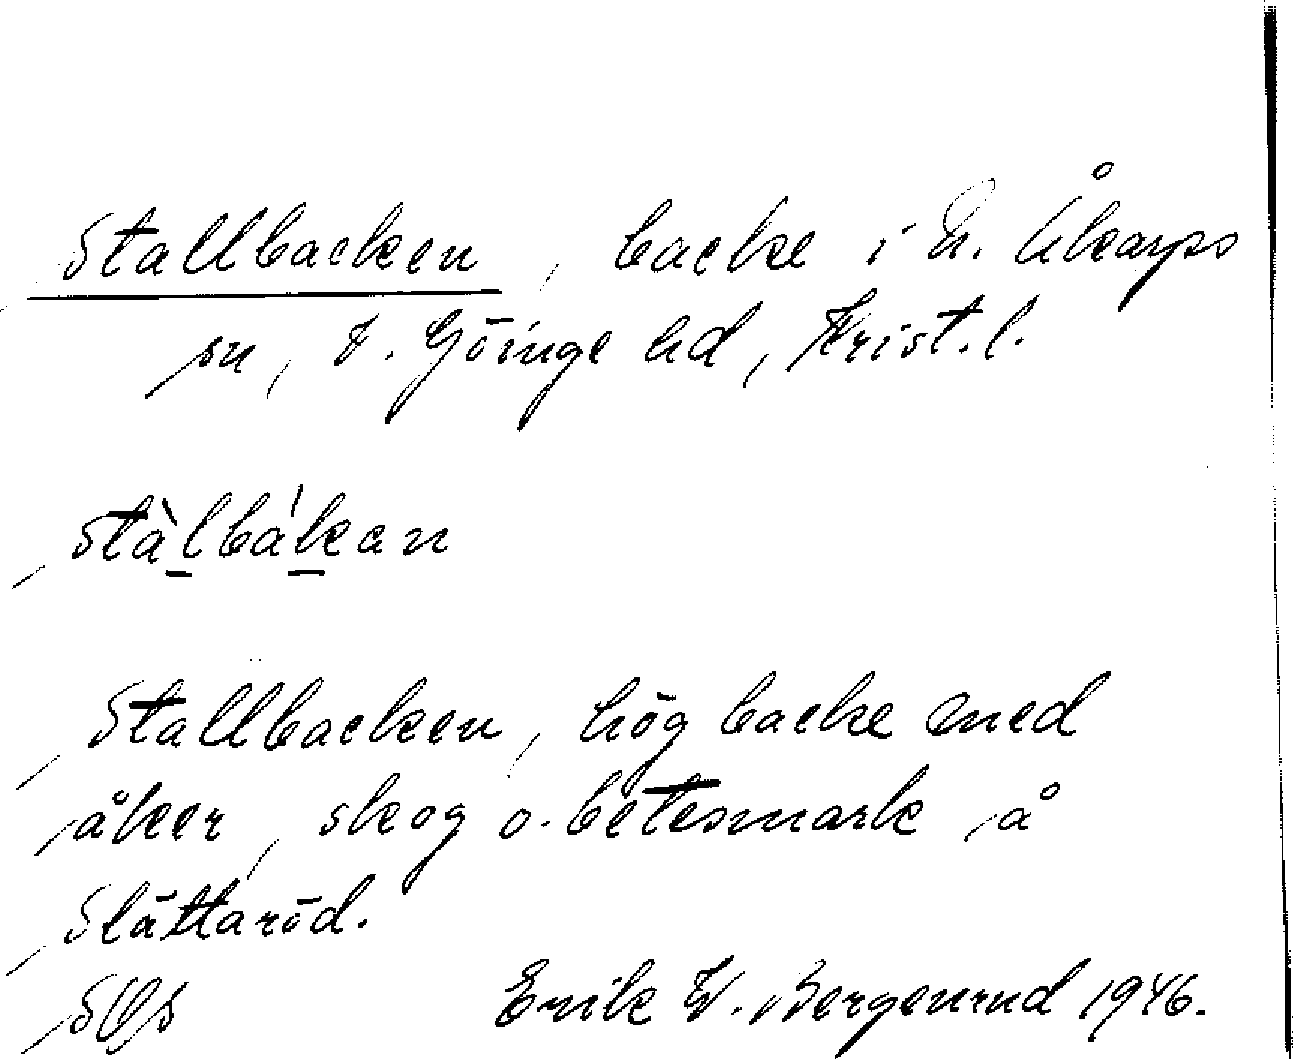 Stallbacken, backe i N. Åkarps
sn, V. Göinge hd, Krist. l.
stàlbákan
Stallbacken, hög backe med
åker, skog o. betesmark å
Slättaröd.
Erik W. Bergenrud 1946.